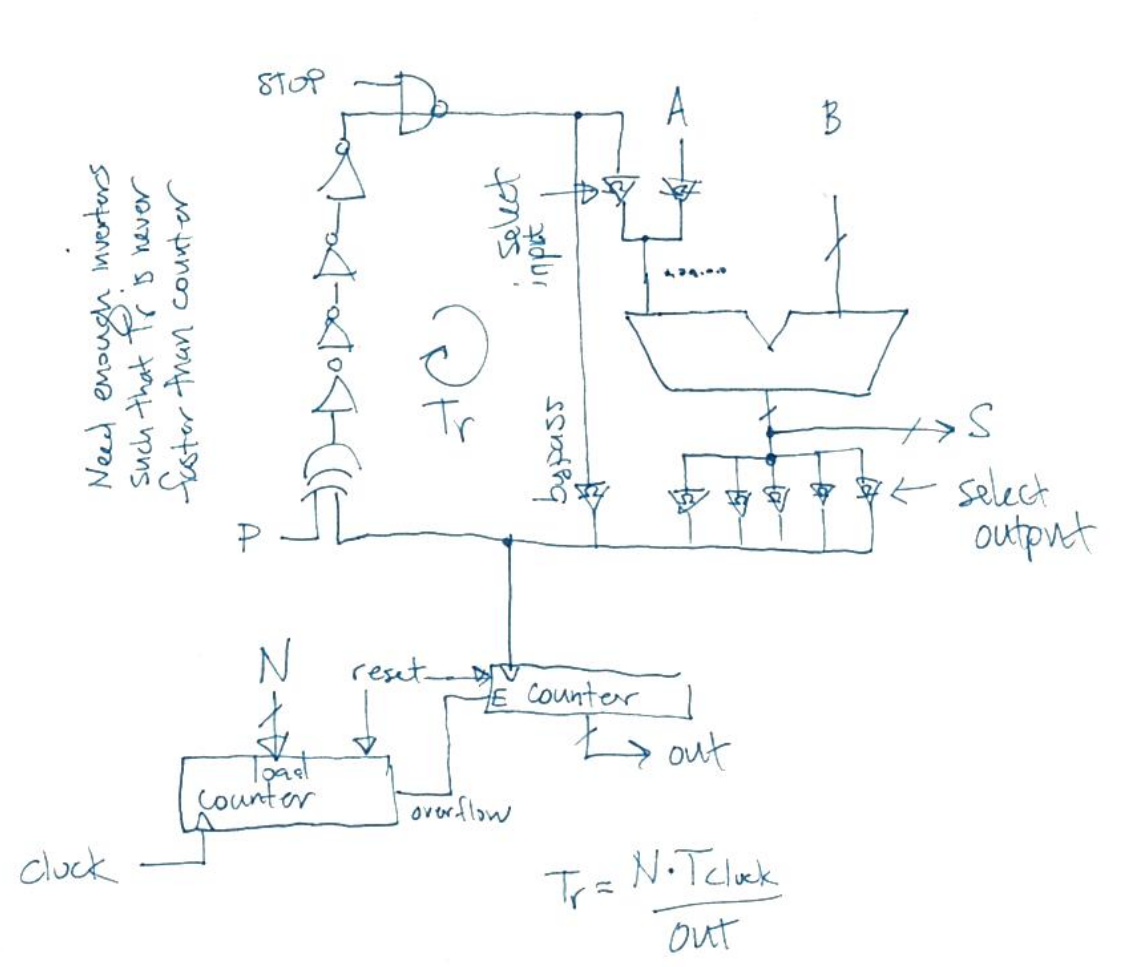 STOP
A
B
Need enough invertors
such that Tr is never
faster than counter
select
input
Tr
bypass
S
select
output
P
N
reset
E counter
out
load
counter
overflow
clock
Tr = N·Tclock
out